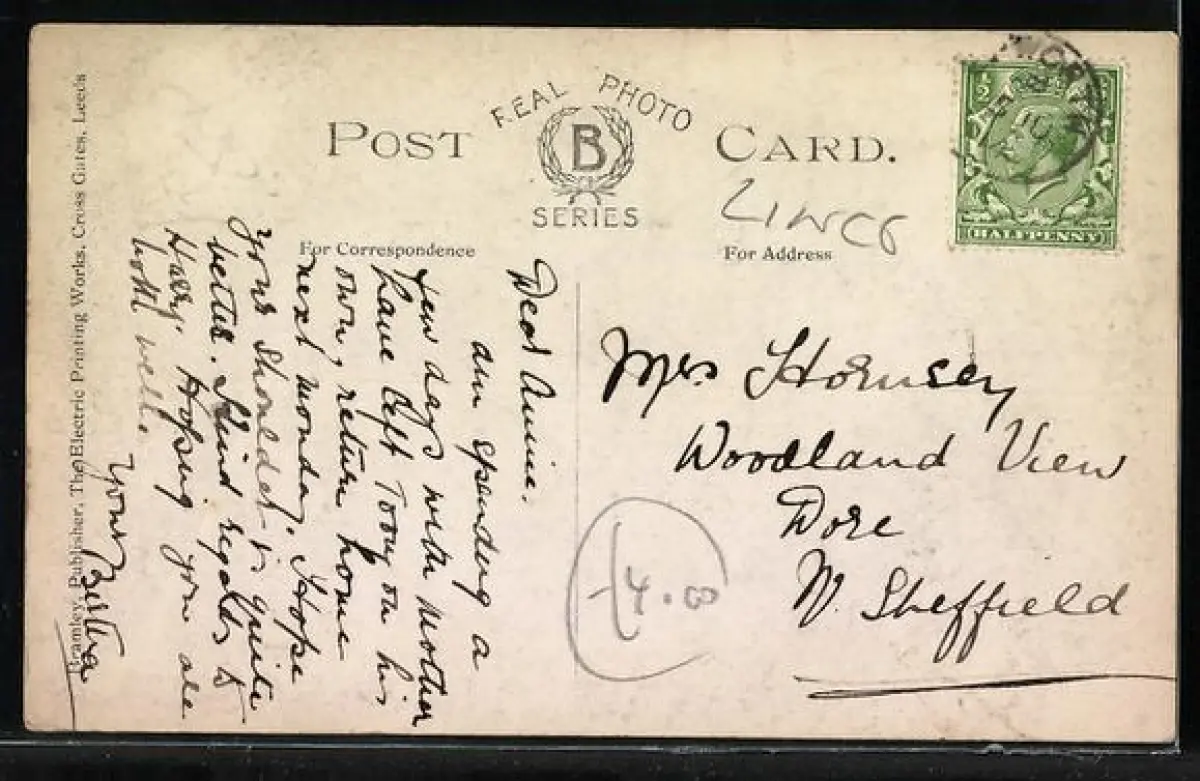 POST CARD.
REAL PHOTO
B
SERIES
LINCS
For Correspondence
For Address
½
HALFPENNY
Dear Annie.
am spending a
few days with mother
have left Tony on his
own, return home
next monday. Hope
your shoulder is quite
better. Kind regards to
Harry. Hoping you are
both well.
Yours Bertha
Mrs Hornsey
Woodland View
Dore
Nr. Sheffield
£4.00
Bramley, Publisher, The Electric Printing Works, Cross Gates, Leeds